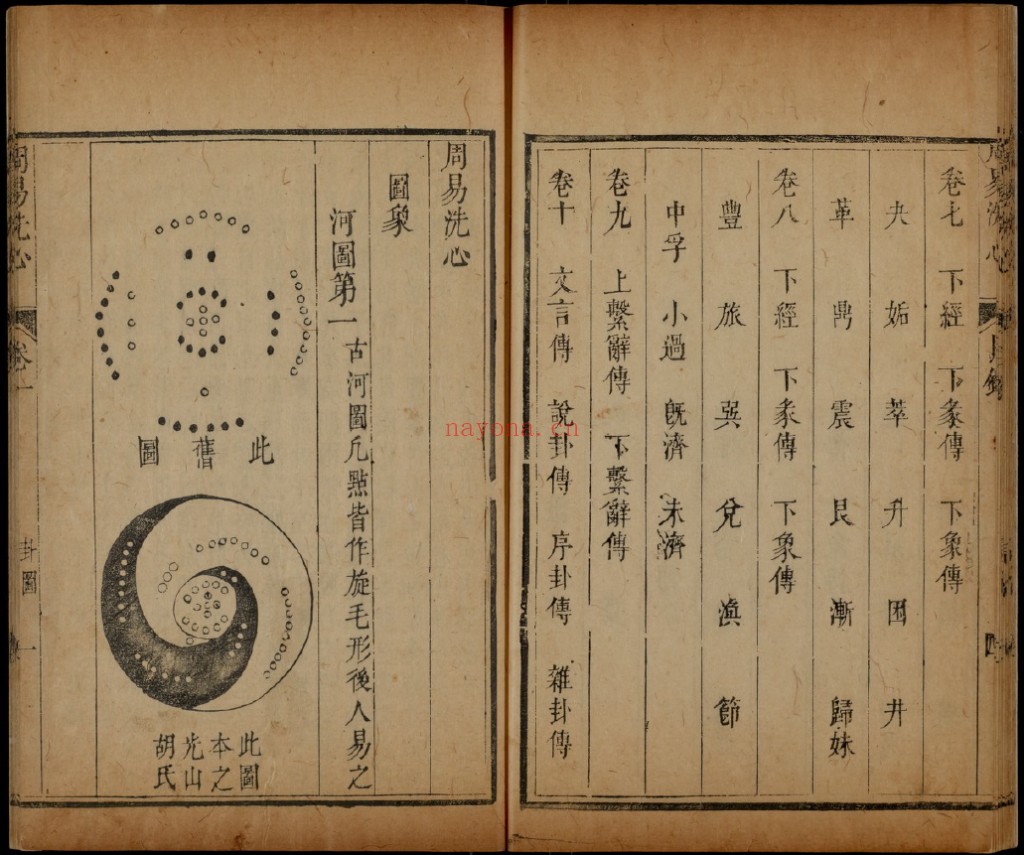 卷七 下經 下彖傳 下象傳
夬 姤 萃 升 困 井
革 鼎 震 艮 漸 歸妹
卷八 下經 下彖傳 下象傳
豐 旅 巽 兌 渙 節
中孚 小過 旣濟 未濟
卷九 上繫辭傳 下繫辭傳
卷十 文言傳 說卦傳 序卦傳 雜卦傳
周易洗心
圖象
河圖第一 古河圖凡㸃皆作旋毛形後人易之
此舊圖
此圖
本之
光山
胡氏
周易洗心 卷一 卦圖 一
nayona.cn